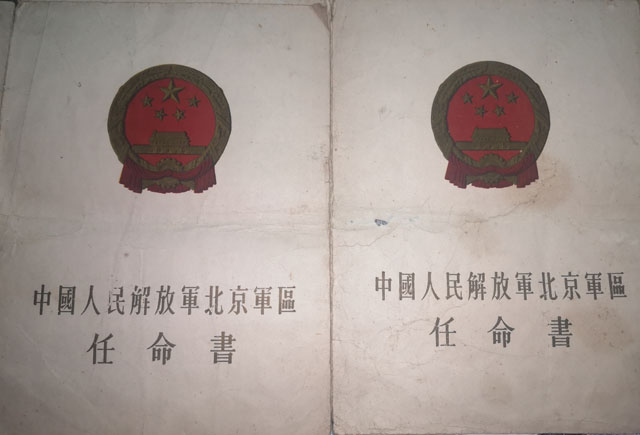 中國人民解放軍北京軍區
任命書
中國人民解放軍北京軍區
任命書